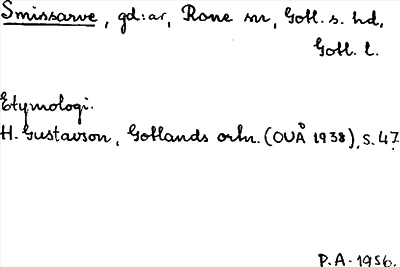 Smissarve, gd:ar, Rone sn, Gotl. s. hd,
Gotl. l.
Etymologi.
H. Gustavson, Gotlands ortn. (OUÅ 1938), s. 47.
P.A. 1956.